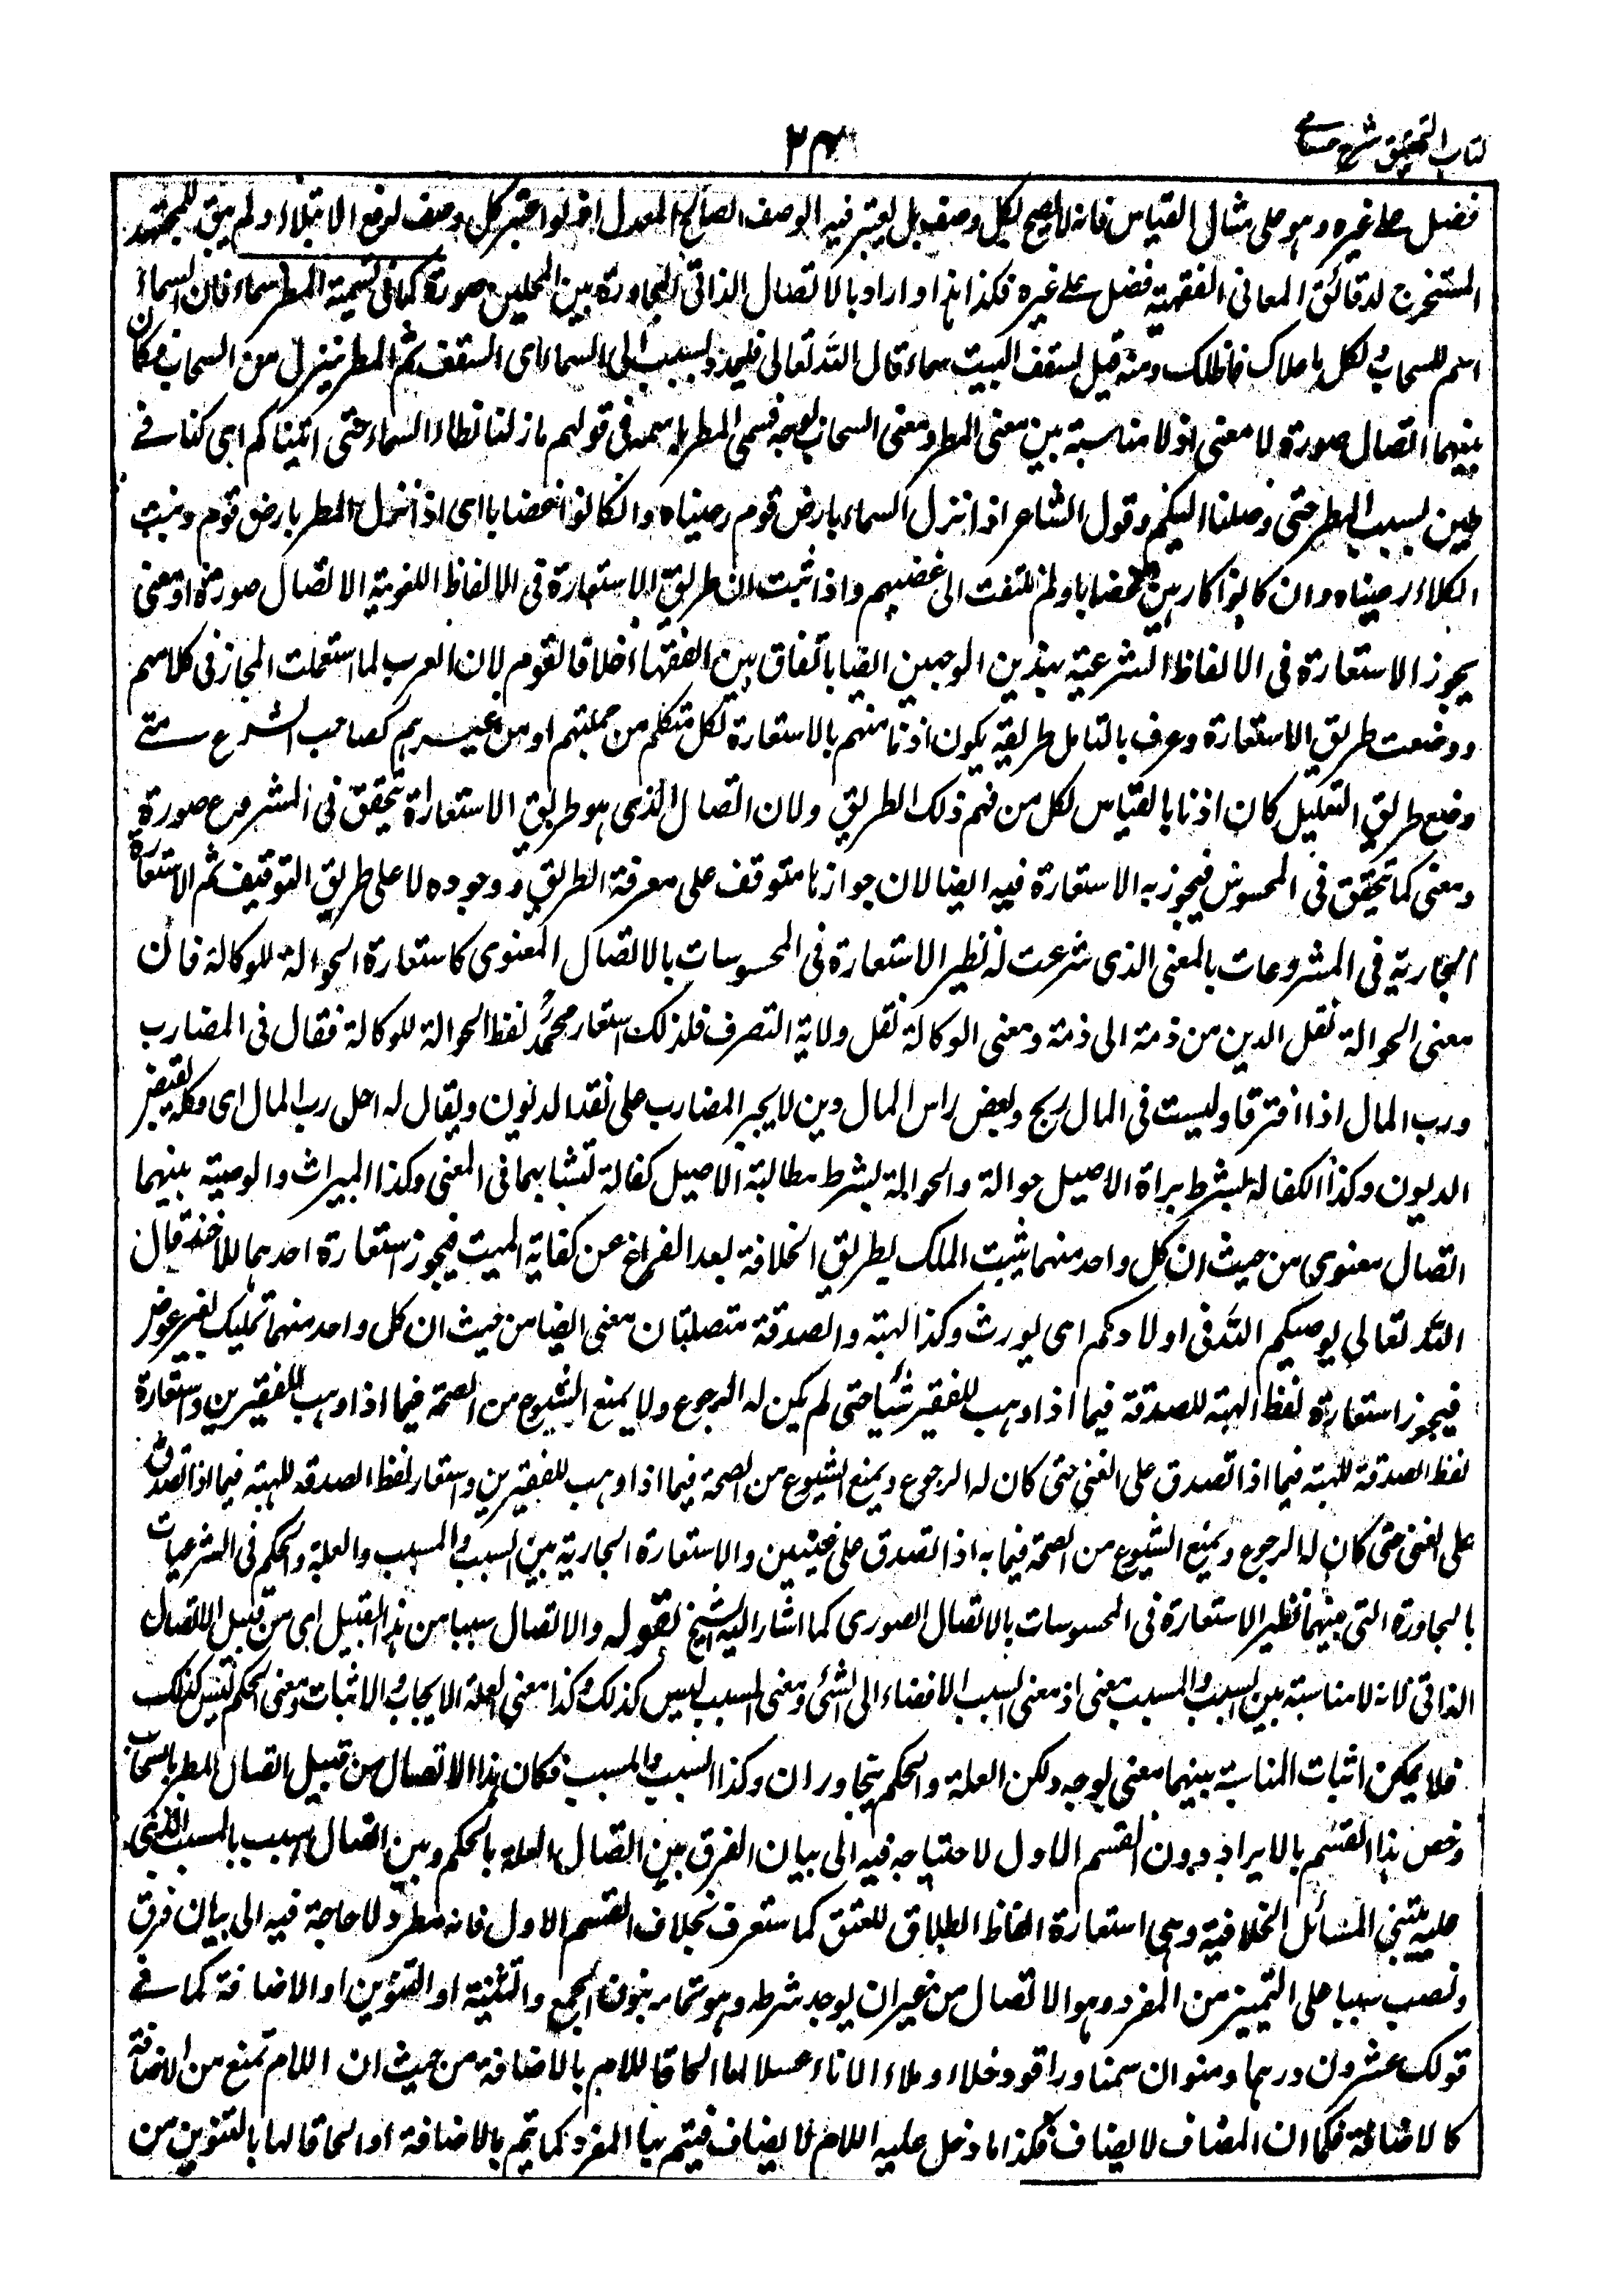 كتاب التحقيق شرح حسامي
فضل على غيره وهو على مثال القياس فانه لا يصح بكل وصف بل يعتبر فيه الوصف الصالح المعدل اذ لو اعتبر كل وصف لوقع الابتلاء ولم يبق للمجتهد
المستخرج لدقائق المعاني الفقهية فضل على غيره فكذا هذا واراد بالاتصال الذاتي المجاورة بين المحلين صورة كما في تسمية المطر سماء فان السماء
اسم للسحاب لكل ما علاك فاظلك ومنه قيل لسقف البيت سماء قال الله تعالى فليمدد بسبب الى السماء اى السقف ثم المطر ينزل من السحاب فكان
بينهما اتصال صورة لا معنى اذ لا مناسبة بين معنى المطر ومعنى السحاب بوجه فسمى المطر باسمه في قولهم ما زلنا نطاء السماء حتى اتيناكم اى كنا في
طين بسبب المطر حتى وصلنا اليكم وقول الشاعر اذا نزل السماء بارض قوم رعيناه وان كانوا غضابا اى اذا نزل المطر بارض قوم ونبت
الكلاء رعيناه وان كانوا كارهين غضابا ولم نلتفت الى غضبهم واذا ثبت ان طريق الاستعارة في الالفاظ اللغوية الاتصال صورة او معنى
يجوز الاستعارة في الالفاظ الشرعية بهذين الوجهين ايضا باتفاق بين الفقهاء خلافا لقوم لان العرب لما استعملت المجاز في كلامهم
ووضعت طريق الاستعارة وعرف بالتامل طريقه يكون اذنا منهم بالاستعارة لكل متكلم من جملتهم او من غيرهم كصاحب الشرع متى
وضع طريق التعليل كان اذنا بالقياس لكل من فهم ذلك الطريق ولان اتصال الذى هو طريق الاستعارة يتحقق في المشروع صورة
ومعنى كما يتحقق في المحسوس فيجوز به الاستعارة فيه ايضا لان جوازها متوقف على معرفة الطريق ووجوده لا على طريق التوقيف ثم الاستعارة
الجارية في المشروعات بالمعنى الذى شرعت له نظير الاستعارة في المحسوسات بالاتصال المعنوى كاستعارة الحوالة للوكالة فان
معنى الحوالة نقل الدين من ذمة الى ذمة ومعنى الوكالة نقل ولاية التصرف فلذلك استعار محمد لفظ الحوالة للوكالة فقال في المضارب
ورب المال اذا افترقا وليست في المال ربح وبعض راس المال دين لا يجبر المضارب على نقد الديون ويقال له احل رب المال اى وكله بقبض
الديون وكذا الكفالة بشرط براة الاصيل حوالة والحوالة بشرط مطالبة الاصيل كفالة لتشابهما في المعنى وكذا الميراث والوصية بينهما
اتصال معنوى من حيث ان كل واحد منهما يثبت الملك بطريق الخلافة بعد الفراغ عن كفاية الميت فيجوز استعارة احدهما للآخر قال
الله تعالى يوصيكم الله في اولادكم اى يورث وكذا الهبة والصدقة متصلتان معنى ايضا من حيث ان كل واحد منهما تمليك بغير عوض
فيجوز استعارة لفظ الهبة للصدقة فيما اذا وهب للفقير شيأ حتى لم يكن له الرجوع ولا يمنع الشيوع من الصحة فيما اذا وهب للفقيرين واستعارة
لفظ الصدقة للهبة فيما اذا تصدق على الغنى حتى كان له الرجوع ويمنع الشيوع من الصحة فيما اذا وهب للفقيرين واستعار لفظ الصدقه للهبة فيما اذا تصدق
على الغنى حتى كان له الرجوع ويمنع الشيوع من الصحة فيما به اذا تصدق على غنيين والاستعارة الجارية بين السبب والمسبب والعلة والحكم في الشرعيات
بالمجاورة التى بينهما نظير الاستعارة في المحسوسات بالاتصال الصورى كما اشار اليه الشيخ بقوله والاتصال سببا من هذا القبيل اى من قبيل الاتصال
الذاتى لانه لا مناسبة بين السبب والمسبب معنى اذ معنى السبب الافضاء الى الشئ ومعنى المسبب ليس كذلك وكذا معنى العلة الايجاب والاثبات ومعنى الحكم ليس كذلك
فلا يمكن اثبات المناسبة بينهما معنى بوجه ولكن العلة والحكم يتجاوران وكذا السبب والمسبب فكان هذا الاتصال من قبيل اتصال المطر بالسحاب
وخص هذا القسم بالايراد دون القسم الاول لاحتياجه فيه الى بيان الفرق بين اتصال العلة بالحكم وبين اتصال السبب بالمسبب الذى
عليه يبتنى المسائل الخلافية وهى استعارة الفاظ الطلاق للعتق كما ستعرف بخلاف القسم الاول فانه مطرد لا حاجة فيه الى بيان فرق
ونصب سببا على التمييز من المفرد وهو الاتصال من غير ان يوجد شرطه وهو تمامه بنون الجمع والتثنية او التنوين او الاضافة كما في
قولك عشرون درهما ومنوان سمنا وراقود خلا وملاء الاناء عسلا لها الحاقا للام بالاضافة من حيث ان اللام تمنع من الاضافة
كالاضافة فكما ان المضاف لا يضاف فكذا ما دخل عليه اللام لا يضاف فيتم بها المفرد كما تم بالاضافة او الحاقا لها بالتنوين من